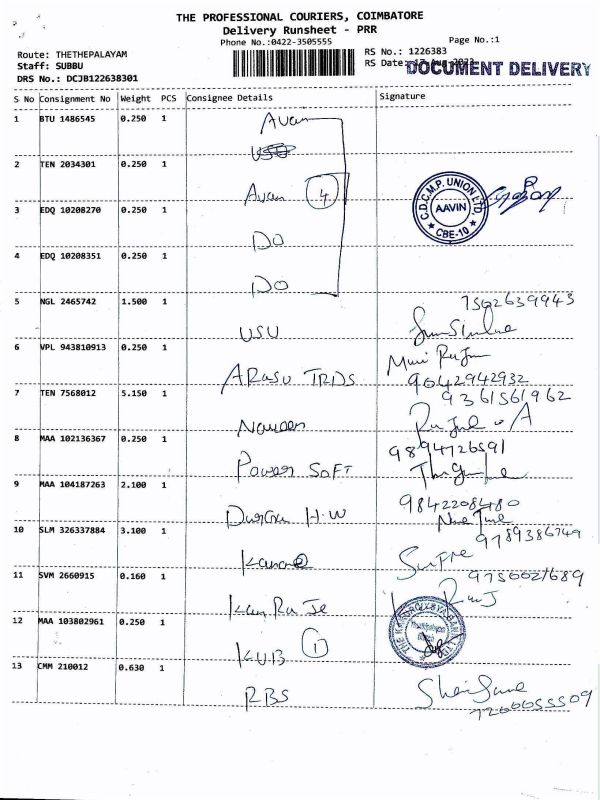 THE PROFESSIONAL COURIERS, COIMBATORE
Delivery Runsheet - PRR
Phone No.:0422-3505555
Page No.:1
Route: THETHEPALAYAM
Staff: SUBBU
DRS No.: DCJB122638301
RS No.: 1226383
RS Date:
DOCUMENT DELIVERY
S No Consignment No Weight PCS Consignee Details Signature
1 BTU 1486545 0.250 1 Avan
2 TEN 2034301 0.250 1 Avan 4
C.D.C.M.P. UNION LTD.
AAVIN
CBE-10
3 EDQ 10208270 0.250 1 DO
4 EDQ 10208351 0.250 1 DO
5 NGL 2465742 1.500 1 USU 7502639943
6 VPL 943810913 0.250 1 ARASU TRDS
9042942932
7 TEN 7568012 5.150 1 Naveen 9361561962
8 MAA 102136367 0.250 1 Power SOFT 9894726591
9 MAA 104187263 2.100 1 Durga H.W 9842208480
10 SLM 326337884 3.100 1 9789386749
11 SVM 2660915 0.160 1 9750021689
12 MAA 103802961 0.250 1 KUB 1
13 CMM 210012 0.630 1 RBS
7200055509